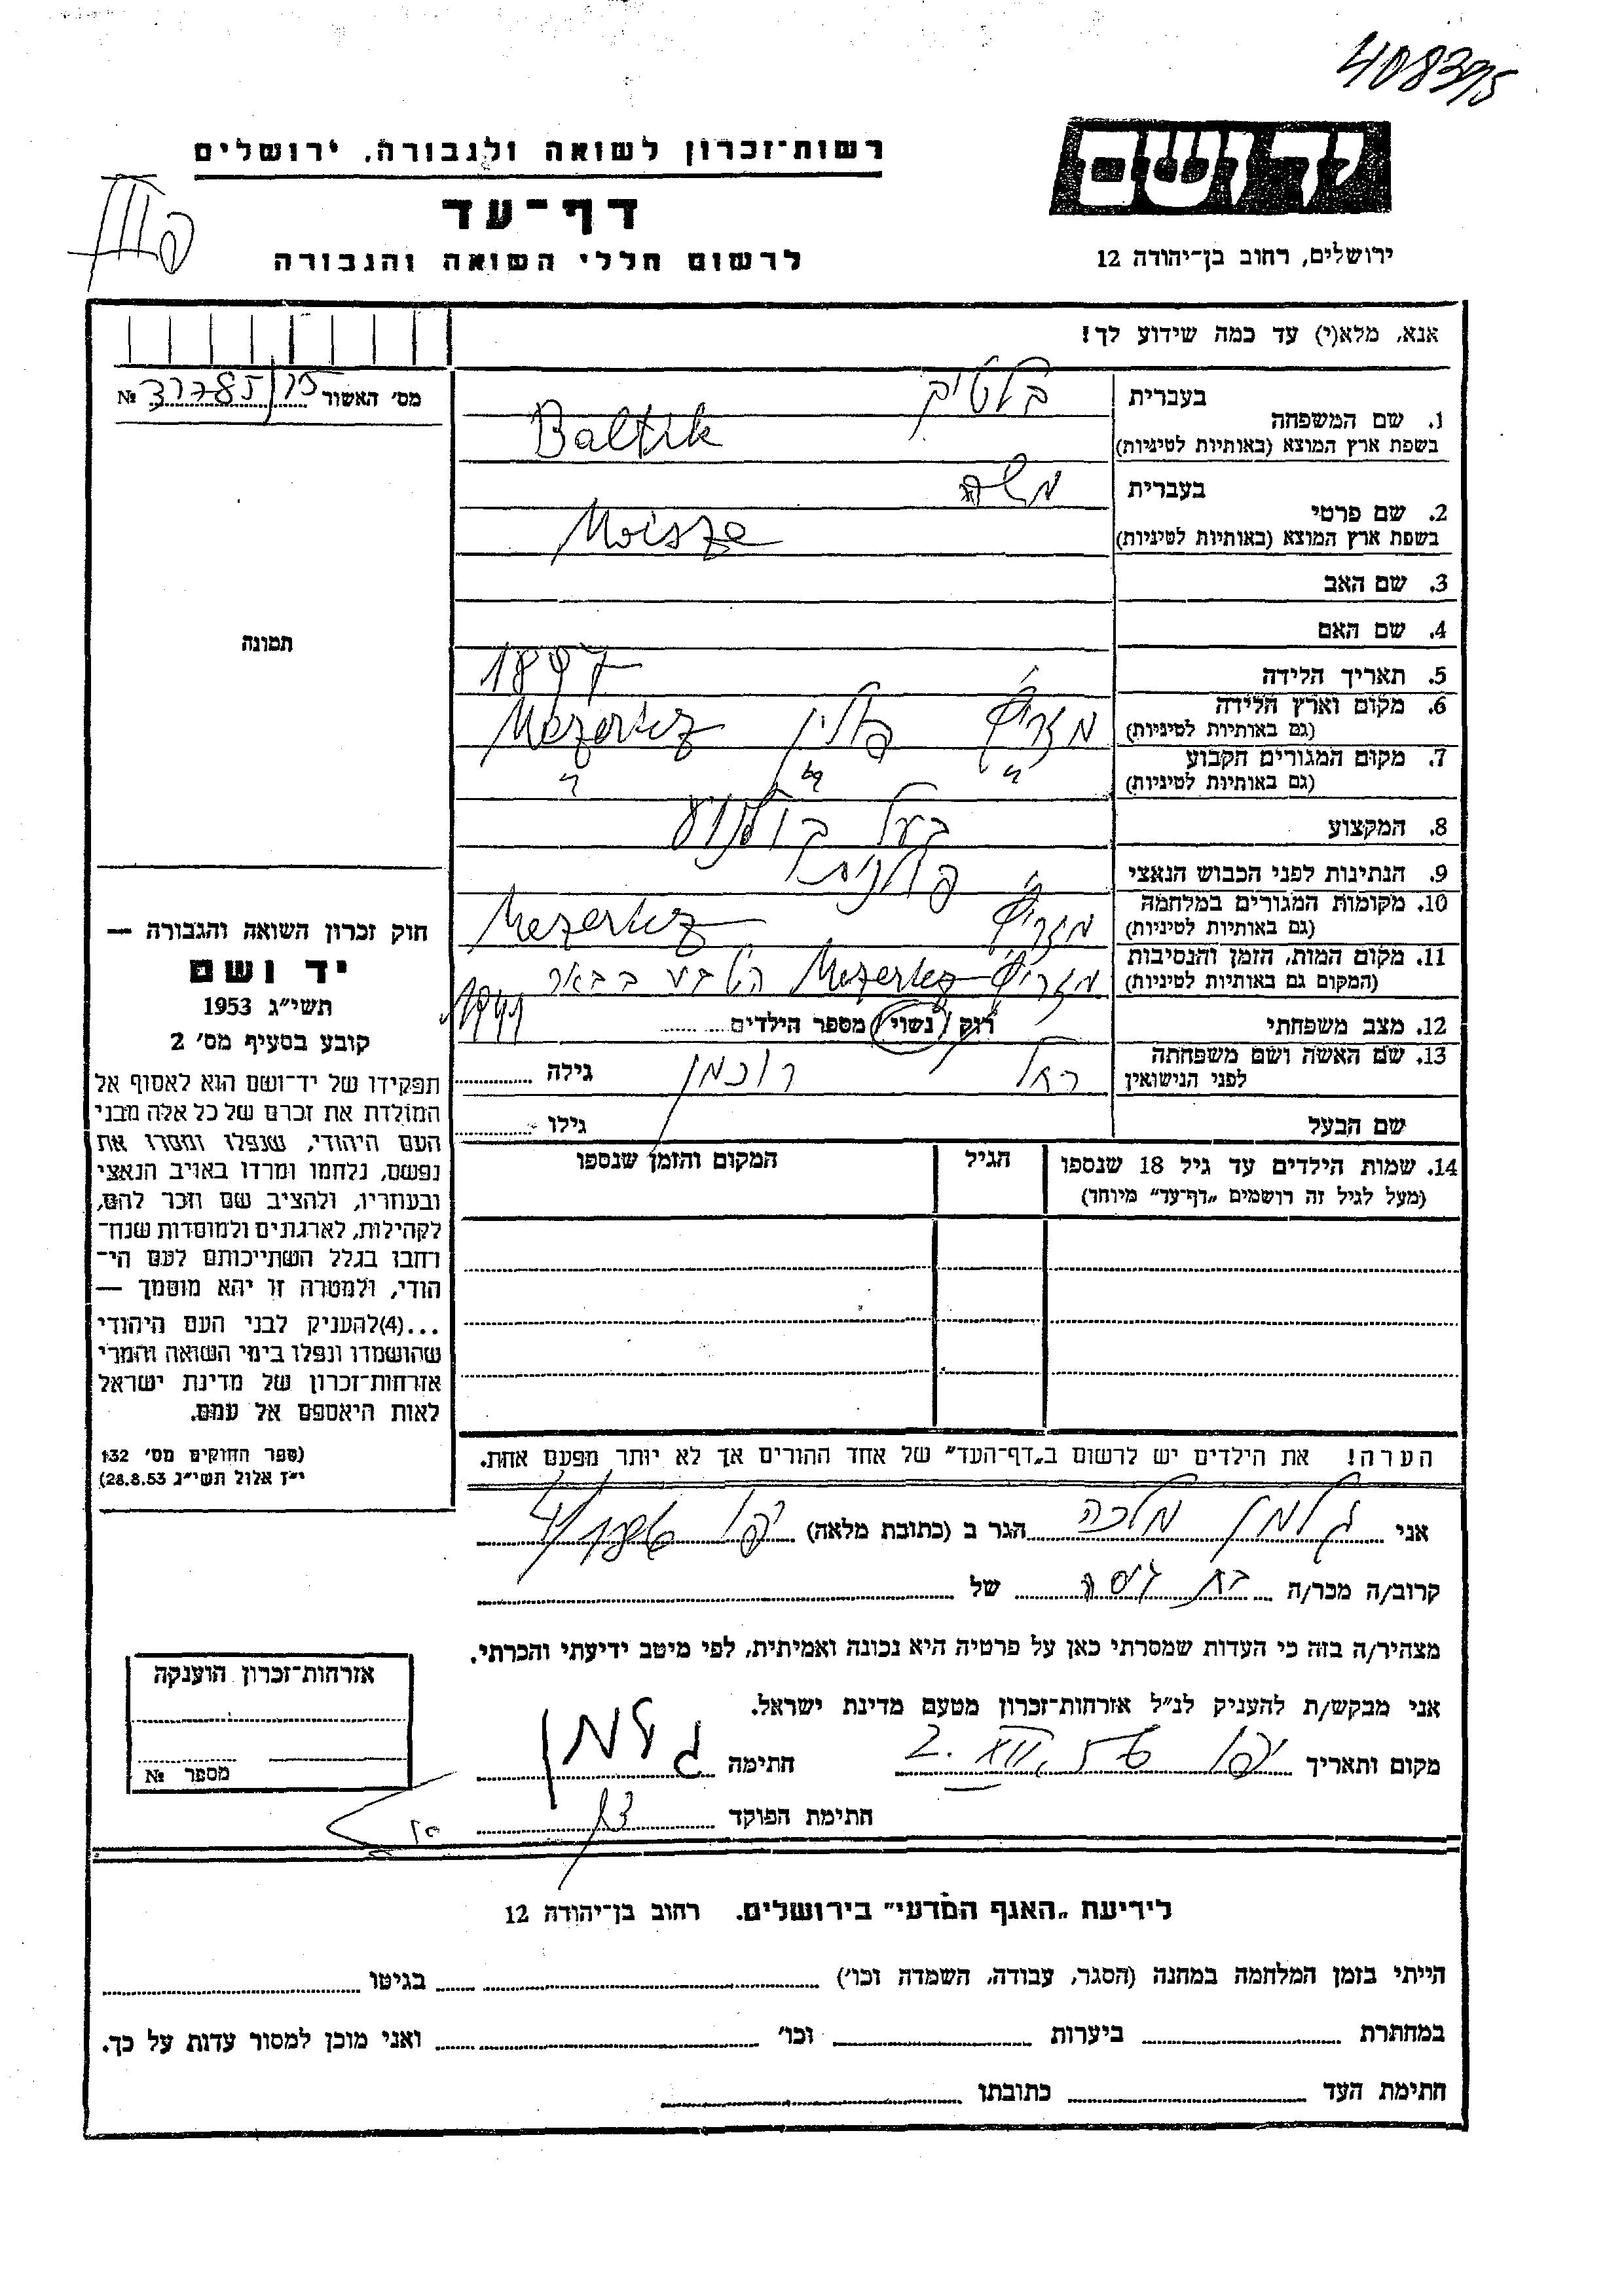 408395
יד ושם
רשות־זכרון לשואה ולגבורה, ירושלים
דף־עד
ירושלים, רחוב בן־יהודה 12
לרשום חללי השואה והגבורה
אנא, מלא(י) עד כמה שידוע לך!
מס׳ האשור 31785/15 №
בעברית
בלטיק
1. שם המשפחה
בשפת ארץ המוצא (באותיות לטיניות)
Baltik
בעברית
משה
2. שם פרטי
בשפת ארץ המוצא (באותיות לטיניות)
Moisze
3. שם האב
4. שם האם
תמונה
5. תאריך הלידה
1897
6. מקום וארץ הלידה
(גם באותיות לטיניות)
פולין
7. מקום המגורים הקבוע
(גם באותיות לטיניות)
8. המקצוע
בעל קולנוע
9. הנתינות לפני הכבוש הנאצי
פולנית
10. מקומות המגורים במלחמה
(גם באותיות לטיניות)
11. מקום המות, הזמן והנסיבות
(המקום גם באותיות לטיניות)
12. מצב משפחתי
רוק / נשוי / מספר הילדים
13. שם האשה ושם משפחתה
לפני הנישואין
רחל
גילה
שם הבעל
גילו
14. שמות הילדים עד גיל 18 שנספו
(מעל לגיל זה רושמים „דף־עד״ מיוחד)
הגיל
המקום והזמן שנספו
חוק זכרון השואה והגבורה —
יד ושם
תשי״ג 1953
קובע בסעיף מס׳ 2
תפקידו של יד־ושם הוא לאסוף אל
המולדת את זכרם של כל אלה מבני
העם היהודי, שנפלו ומסרו את
נפשם, נלחמו ומרדו באויב הנאצי
ובעוזריו, ולהציב שם וזכר להם,
לקהילות, לארגונים ולמוסדות שנח־
רחבו בגלל השתייכותם לעם הי־
הודי, ולמטרה זו יהא מוסמך —
...(4)להעניק לבני העם היהודי
שהושמדו ונפלו בימי השואה והמרי
אזרחות־זכרון של מדינת ישראל
לאות היאספם אל עמם.
(ספר החוקים מס׳ 132
י״ז אלול תשי״ג 28.8.53)
הערה! את הילדים יש לרשום ב„דף־העד״ של אחד ההורים אך לא יותר מפעם אחת.
אני גלמן מלכה הגר ב (כתובת מלאה) יפו
קרוב/ה מכר/ה בת גיסה של
מצהיר/ה בזה כי העדות שמסרתי כאן על פרטיה היא נכונה ואמיתית, לפי מיטב ידיעתי והכרתי.
אני מבקש/ת להעניק לנ״ל אזרחות־זכרון מטעם מדינת ישראל.
מקום ותאריך יפו חתימה גלמן
חתימת הפוקד
אזרחות־זכרון הוענקה
מספר №
לידיעת „האגף המדעי״ בירושלים. רחוב בן־יהודה 12
הייתי בזמן המלחמה במחנה (הסגר, עבודה, השמדה וכו׳) בגיטו
במחתרת ביערות וכו׳ ואני מוכן למסור עדות על כך.
חתימת העד כתובתו